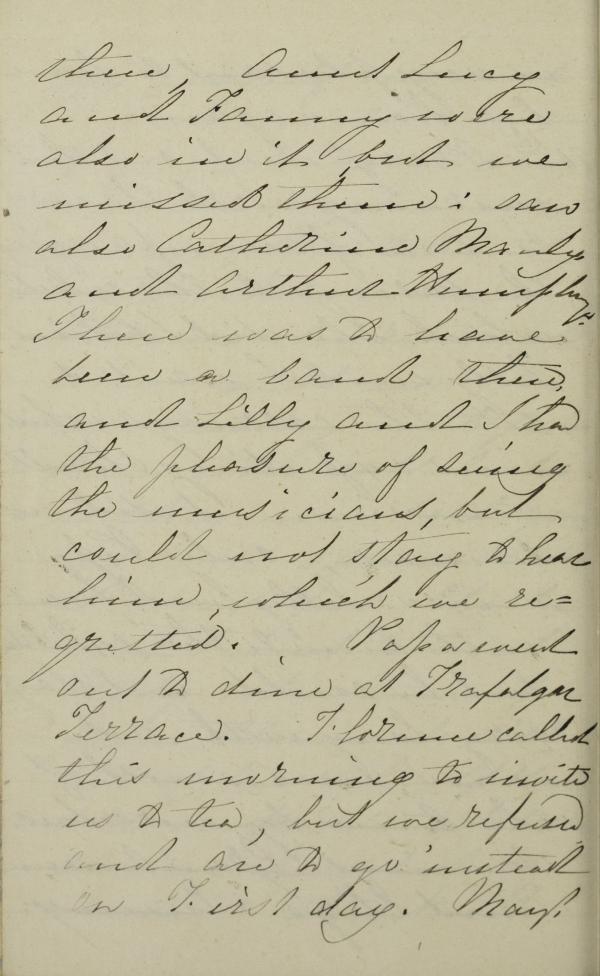 there, Aunt Lucy
and Fanny were
also in it, but we
missed them; saw
also Catherine
and Arthur Humphrys.
There was to have
been a band there,
and Lilly and I had
the pleasure of seeing
the musicians, but
could not stay to hear
him, which we re=
gretted. Papa went
out to dine at Trafalgar
Terrace. Florence called
this morning to invite
us to tea, but we refused
and are to go instead
on First day.